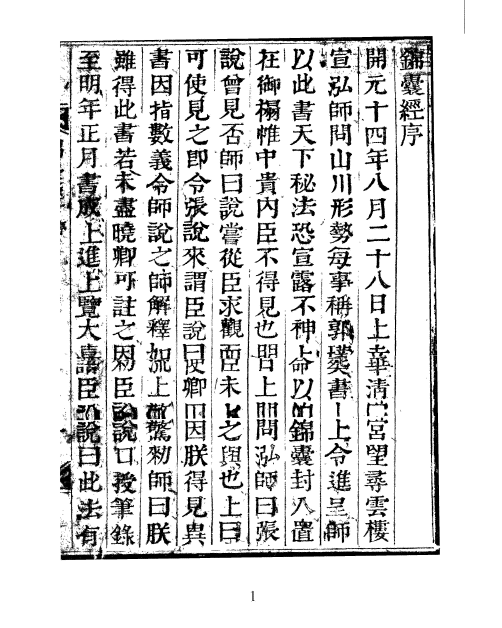 錦囊經序
開元十四年八月二十八日上幸清宮望尋雲樓
宣泓師問山川形勢每事稱郭璞書上令進呈師
以此書天下秘法恐宣露不神上命以錦囊封入置
在御榻帷中貴內臣不得見也上問泓師曰張
說曾見否師曰說嘗從臣求觀而臣未之與也上曰
可使見之即令張說來謂臣說曰卿因朕得見異
書因指數義令師說之師解釋如流上驚勑師曰朕
雖得此書若未盡曉卿可註之因勑臣泓說口授筆錄
至明年正月書成上進上覽大喜語臣泓說曰此法有
1